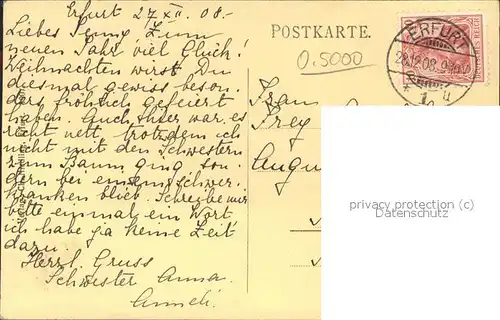 Erfurt 27 XII. 08.-
Liebes Jenny. Zum
neuen Jahr viel Glück!
Weihnachten wirst Du
diesmal gewiss beson.
ders fröhlich gefeiert
haben. Auch hier war es
recht nett, trotzdem ich
nicht mit den Schwestern
zum Baum ging son.
dern bei einem Schwer.
kranken blieb. Schreibe mir
bitte einmal ein Wort
ich habe ja keine Zeit
dazu.
Herzl. Gruss
Schwester Anna.
POSTKARTE.
0.5000
ERFURT
28.12.08.
DEUTSCHES REICH
Frau
Frey
Augu
privacy protection (c)
Datenschutz